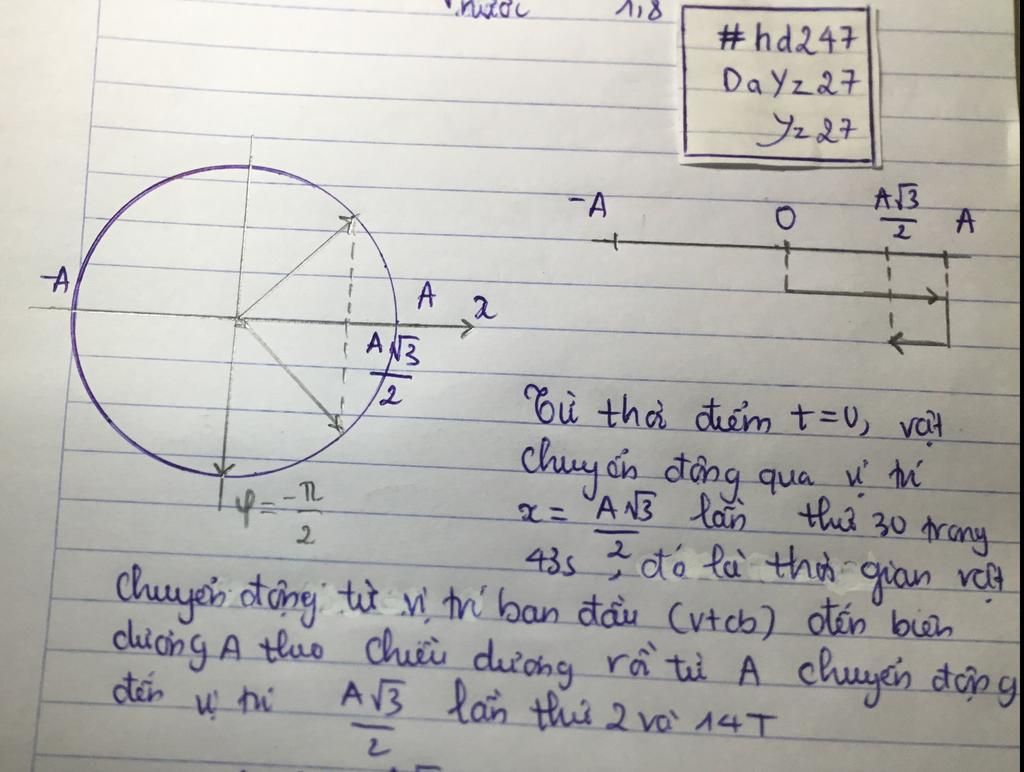 nước 1,8
#hd247
DaYz27
Yz27
-A O A√3/2 A
-A A x
A√3/2
φ = -π/2
Từ thời điểm t=0, vật
chuyển động qua vị trí
x = A√3/2 lần thứ 30 trong
43s, đó là thời gian vật
chuyển động từ vị trí ban đầu (vtcb) đến biên
dương A theo chiều dương rồi từ A chuyển động
đến vị trí A√3/2 lần thứ 2 và 14T